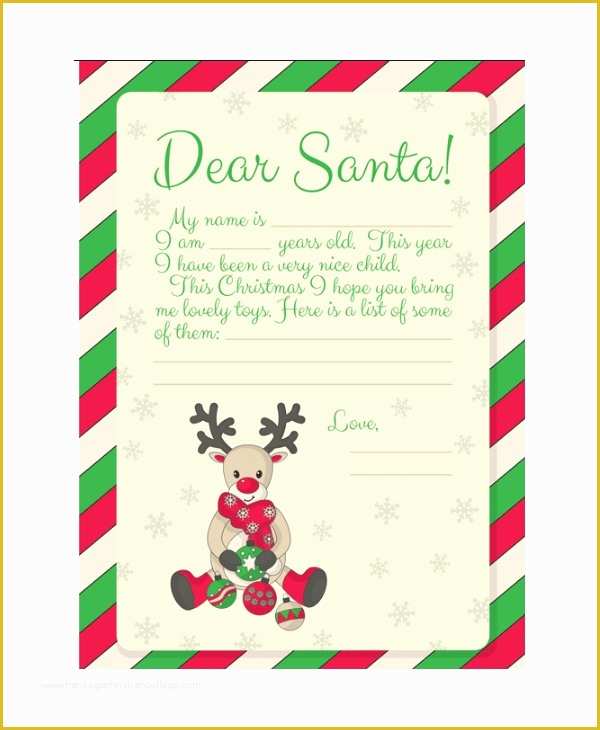 Dear Santa!
My name is
I am years old. This year
I have been a very nice child.
This Christmas I hope you bring
me lovely toys. Here is a list of some
of them:
Love,